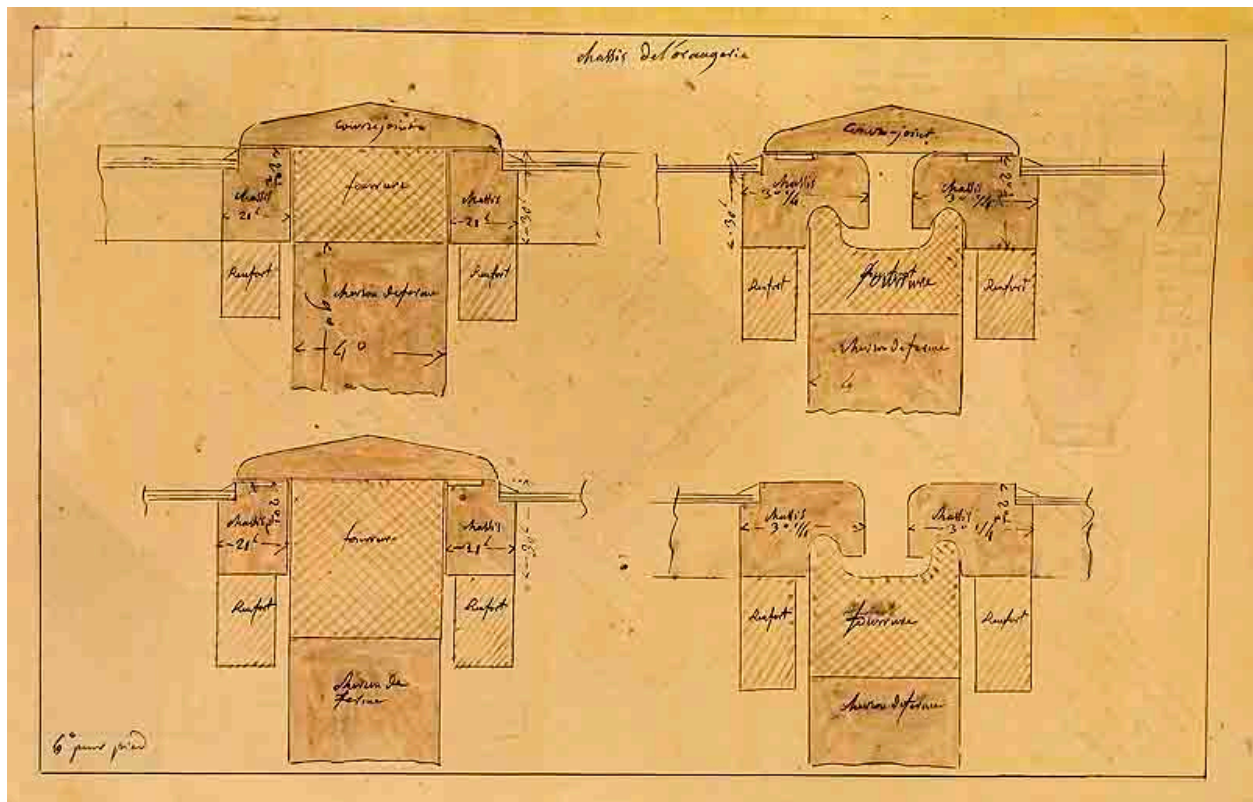 chassis de l'orangerie
couvre joint
chassis
20ˡ
fourrure
chassis
20ˡ
30ˡ
Renfort
chevron de ferme
Renfort
4°
couvre-joint
chassis
3° 1/4
chassis
3° 1/4
30ˡ
Renfort
fourrure
Renfort
chevron de ferme
4
chassis
20ˡ
fourrure
chassis
20ˡ
30ˡ
Renfort
Renfort
chevron de
ferme
chassis
3° 1/4
chassis
3° 1/4
Renfort
fourrure
Renfort
chevron de ferme
6° pour pied